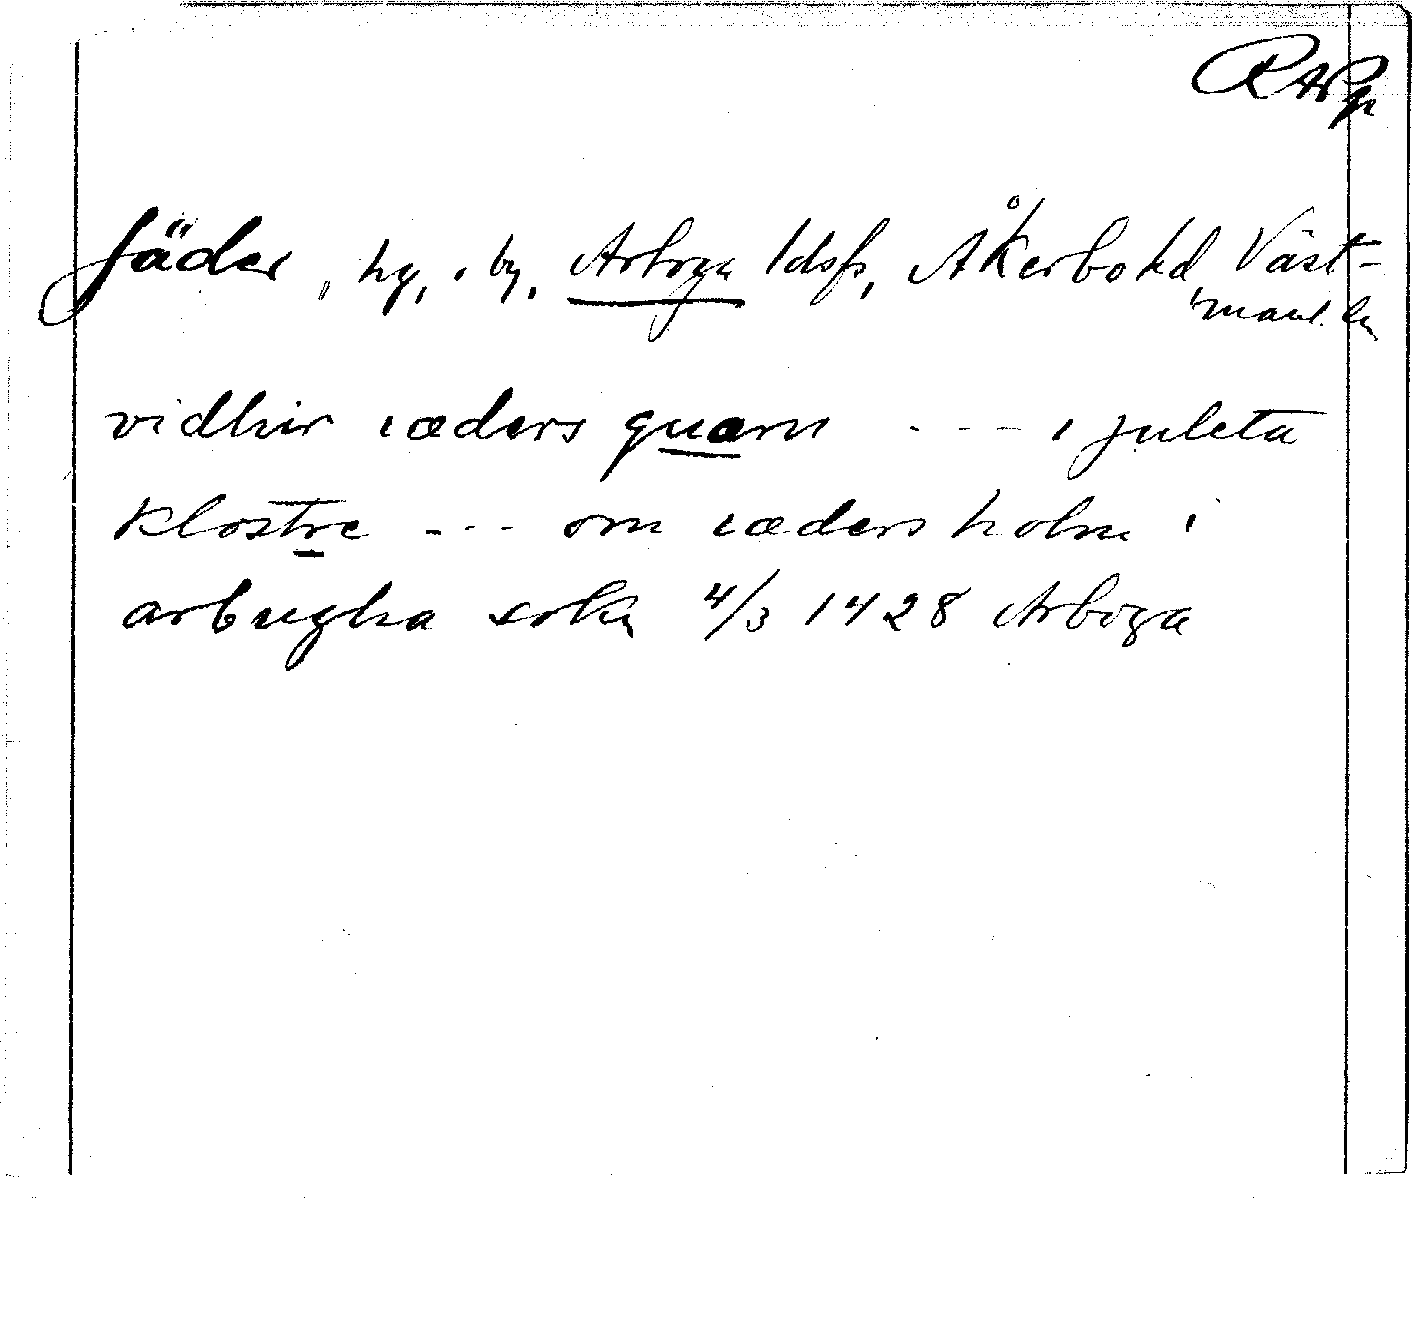 RAp
Jäder, hg, i by, Arboga ldsfs, Åkerbo hd, Väst-
manl. ln
vidhir iæders quærn --- i juleta
klostre --- om iæders holm i
arbugha sokn 4/3 1428 Arboga